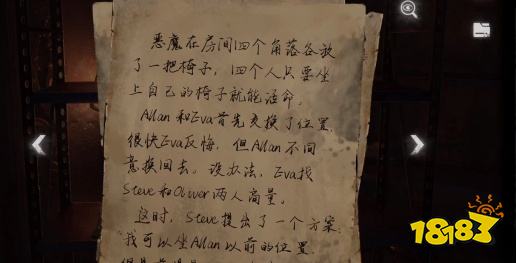 恶魔在房间四个角落各放
了一把椅子，四个人只要坐
上自己的椅子就能活命。
Allan和Eva首先交换了位置
很快Eva反悔，但Allan不同
意换回去。没办法，Eva找
Steve和Oliver两人商量。
这时，Steve提出了一个方案
“我可以坐Allan以前的位置
18183